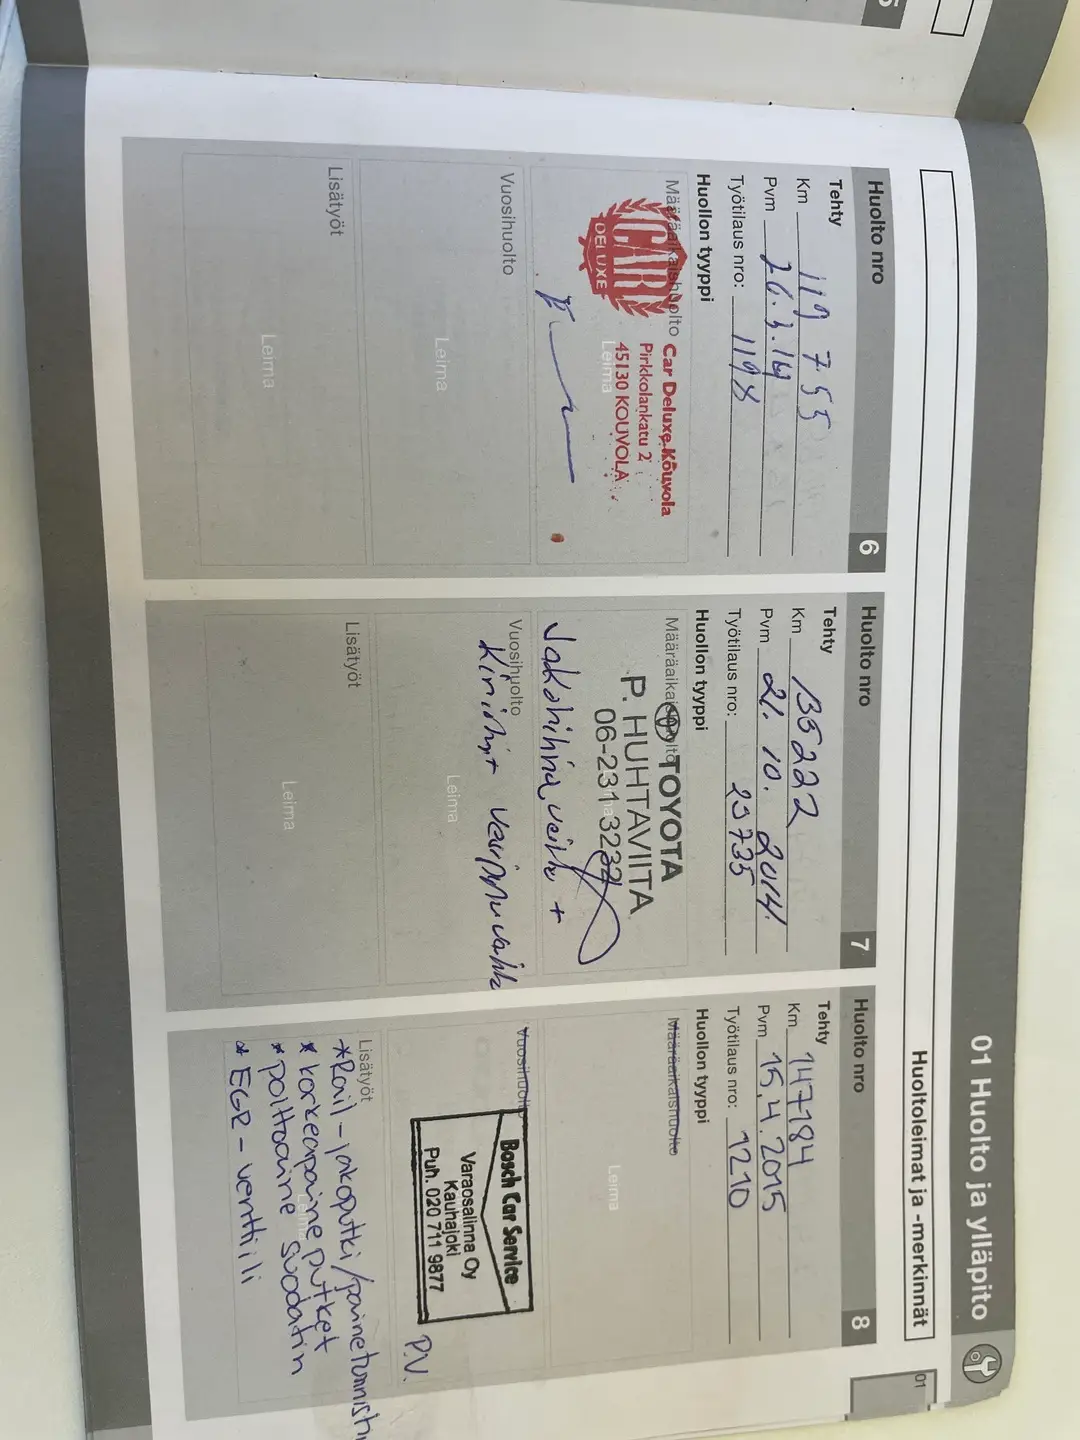 01 Huolto ja ylläpito
01
Huoltoleimat ja -merkinnät
Huolto nro 6
Tehty
Km 119 755
Pvm 26.3.14
Työtilaus nro: 1198
Huollon tyyppi
Määräaikaishuolto
CAR
DELUXE
Car Deluxe Kouvola
Pirkkolankatu 2
45130 KOUVOLA
Leima
Vuosihuolto
Leima
Lisätyöt
Leima
Huolto nro 7
Tehty
Km 135222
Pvm 21.10. 2014.
Työtilaus nro: 23735
Huollon tyyppi
Määräaikaishuolto
TOYOTA
P. HUHTAVIITA
06-231 3232
Leima
Jakohihna vaihto +
Vuosihuolto
Leima
Lisätyöt
Leima
Huolto nro 8
Tehty
Km 147184
Pvm 15.4.2015
Työtilaus nro: 1210
Huollon tyyppi
Määräaikaishuolto
Leima
Vuosihuolto
Bosch Car Service
Varaosalinna Oy
Kauhajoki
Puh. 020 711 9877
P.V.
Lisätyöt
*Rail-jakoputki/painetunnistin
* korkeapaine putket
Leima
* polttoaine suodatin
* EGR-venttiili